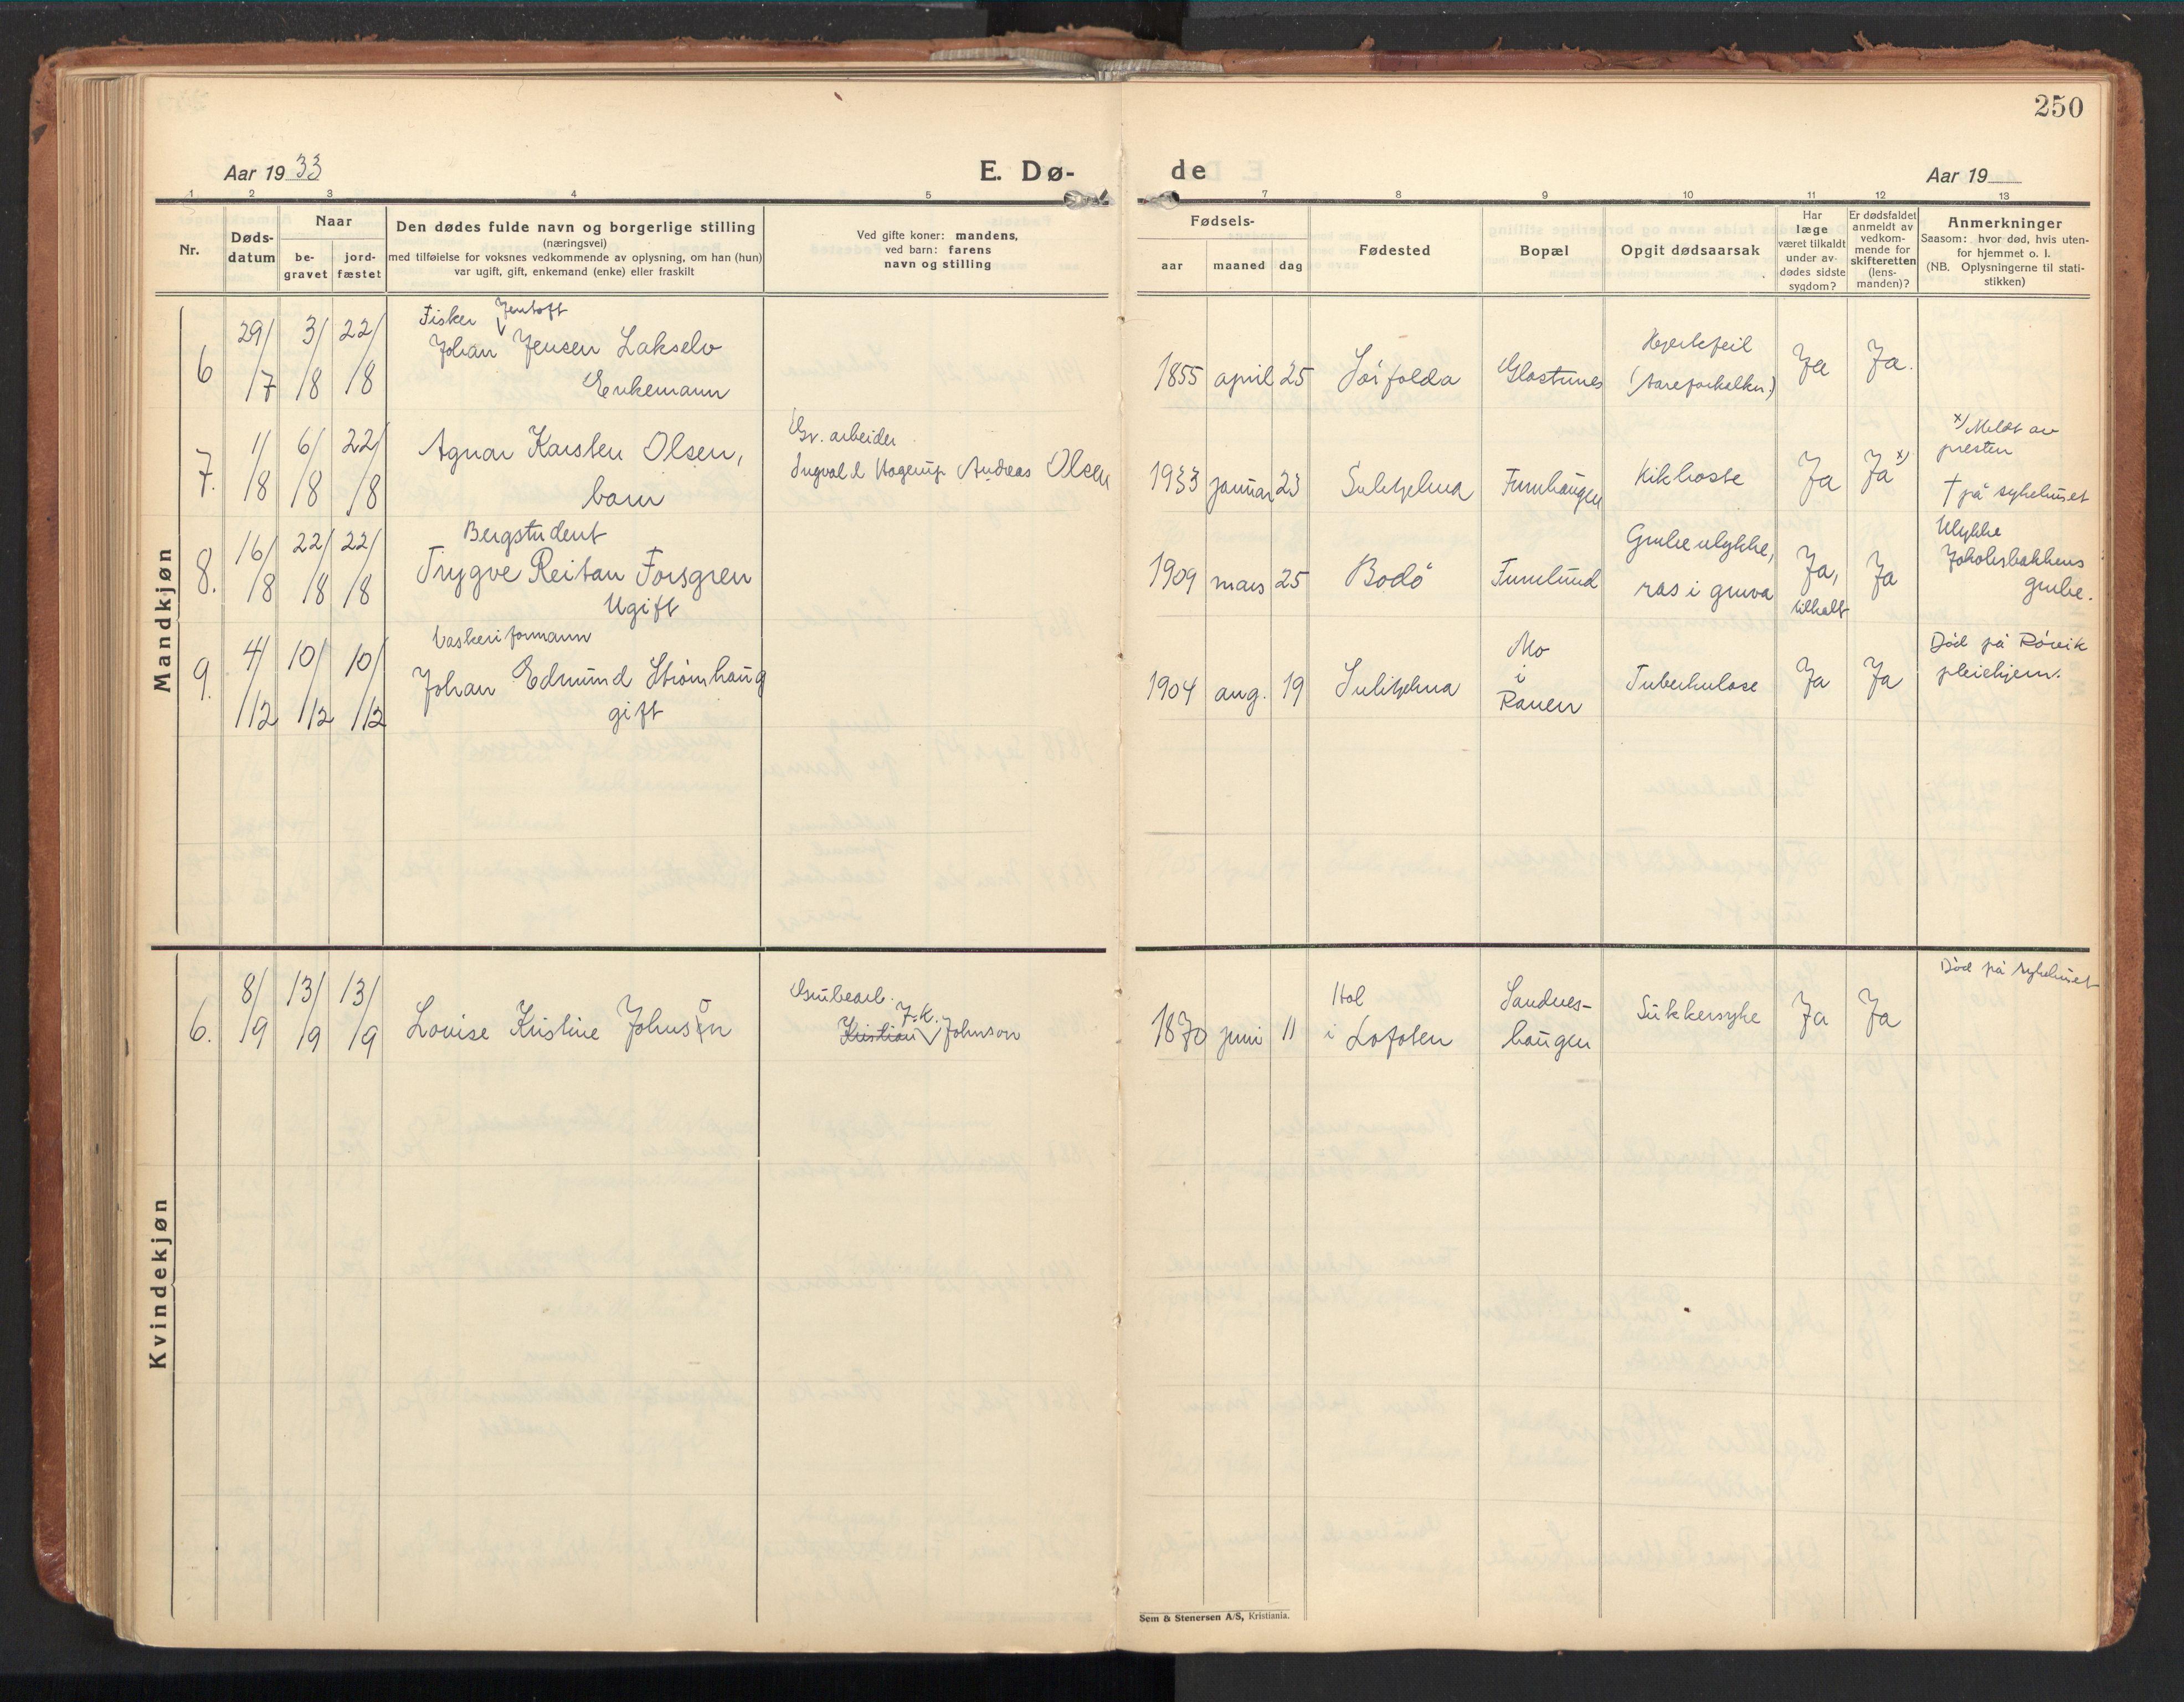 250
Aar 1933
E. Dø-
de
Aar 19
1 2 3 4 5 7 8 9 10 11 12 13
Nr.
Døds-
datum
Naar
be-
gravet
jord-
fæstet
Den dødes fulde navn og borgerlige stilling
(næringsvei)
med tilføielse for voksnes vedkommende av oplysning, om han (hun)
var ugift, gift, enkemand (enke) eller fraskilt
Ved gifte koner: mandens,
ved barn: farens
navn og stilling
Fødsels-
aar
maaned
dag
Fødested
Bopæl
Opgit dødsaarsak
Har
læge
været tilkaldt
under av-
dødes sidste
sygdom?
Er dødsfaldet
anmeldt av
vedkom-
mende for
skifteretten
(lens-
manden)?
Anmerkninger
Saasom: hvor død, hvis uten-
for hjemmet o. l.
(NB. Oplysningerne til stati-
stikken)
Mandkjøn
6 29/7 3/8 22/8
Fisker Jentoft
Johan Jensen Lakselv
Enkemann
1855 april 25 Sörfolda Glastunes
Hjertefeil
(Aareforkalkn.)
Ja Ja.
7. 1/8 6/8 22/8
Agnar Karsten Olsen,
barn
Gr. arbeider
Ingvald Hagerup Andreas Olsen
1933 januar 23 Sulitjelma Furuhaugen Kikhoste Ja Ja x)
x) Meldt av
presten
† på sykehuset
8. 16/8 22/8 22/8
Bergstudent
Trygve Reitan Forsgren
Ugift
1909 mars 25 Bodö Furulund
Grubeulykke,
ras i gruva
Ja,
tilkalt
Ja
Ulykke
Jakobsbakkens
grube.
9. 4/12 10/12 10/12
Vaskeriformann
Johan Edmund Strömhaug
gift
1904 aug. 19 Sulitjelma
Mo
i
Ranen
Tuberkulose Ja Ja
Död på Rövik
pleiehjem.
Kvindekjøn
6. 8/9 13/9 13/9
Louise Kristine Johnson
Grubearb.
J.K.
Kristian Johnson
1870 juni 11
Hol
i Lofoten
Sandnes-
haugen
Sukkersyke Ja Ja
Död på sykehuset
Sem & Stenersen A/S, Kristiania.